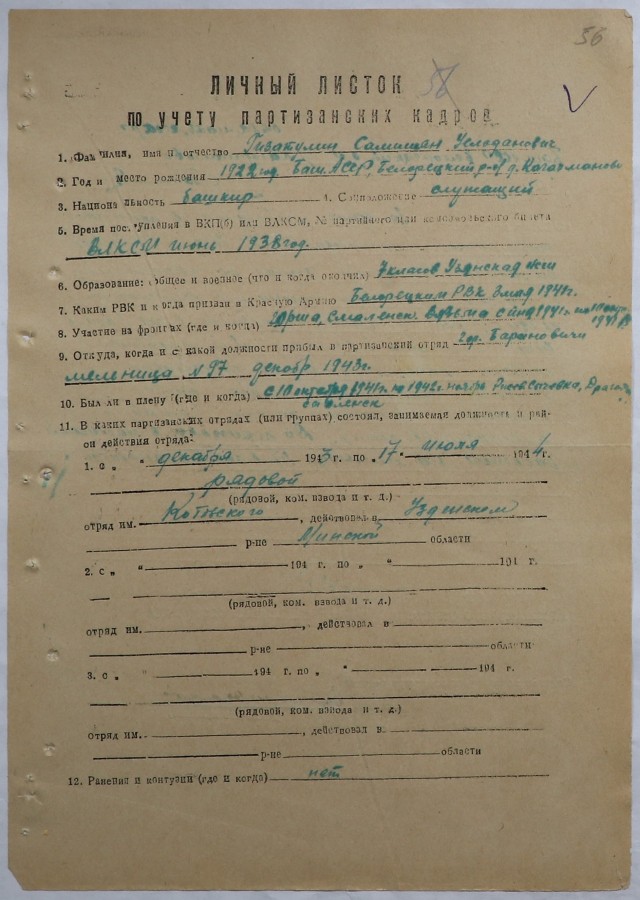 56
56
ЛИЧНЫЙ ЛИСТОК
по учету партизанских кадров
1. Фамилия, имя и отчество Гизатулин
2. Год и место рождения 1922 год Баш АССР, Белорецкий р-он д.
3. Национальность башкир 4. Соцположение служащий
5. Время поступления в ВКП(б) или ВЛКСМ, № партийного или комсомольского билета
ВЛКСМ июнь 1938 год.
6. Образование: общее и военное (что и когда окончил) 7 класов
7. Каким РВК и когда призван в Красную Армию Белорецким РВК 3 мая 1941 г.
8. Участие на фронтах (где и когда) Орша, Смоленск. Вязьма с 1941 г. по
9. Откуда, когда и с какой должности прибыл в партизанский отряд гор. Барановичи
мельница № 97 декабр 1943 г.
10. Был ли в плену (где и когда) с 10 октября 1941 г. по 1942 г. ноябр
11. В каких партизанских отрядах (или группах) состоял, занимаемая должность и рай-
он действия отряда:
1. с „ " декабря 1943 г. по „17" июля 1944 г.
рядовой
(рядовой, ком. взвода и т. д.)
отряд им. Котовского, действовал в Узденском
р-не Минской области
2. с „ " 194 г. по „ " 194 г.
(рядовой, ком. взвода и т. д.)
отряд им. , действовал в
р-не области
3. с „ " 194 г. по „ " 194 г.
(рядовой, ком. взвода и т. д.)
отряд им. , действовал в
р-не области
12. Ранения и контузии (где и когда) нет